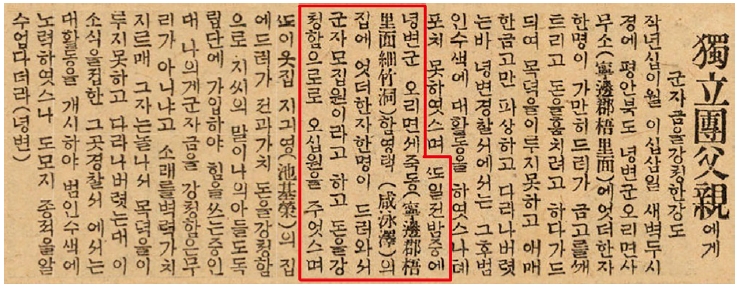 獨立團父親에게
군자금을강쳥한강도
작년십이월 이십삼일 새벽두시
경에 평안북도 녕변군오리면사
무소(寧邊郡梧里面)에엇더한자
한명이 가만히드러가 금고를깨
트리고 돈을훔치려고 하다가드
되여 목력을이루지못하고 애매
한금고만 파상하고 다라나버렷
는바 녕변경찰서에서는 그후범
인수색에 대활동을 하엿스나데
포치 못하엿스며 또일젼밤중에
녕변군 오리면셰쥭동(寧邊郡梧
里面細竹洞)함영택(咸泳澤)의
집에 엇더한자한명이 드러와서
군자모집원이라고 하고 돈을강
쳥함으로로 오십원을 주엇스며
또이웃집 지긔영(池基榮)의 집
에드러가 젼과가치 돈을강쳥함
으로 지씨의 말이나의아들도독
립단에 가입하야 힘을쓰는중인
대 나의게군자금을 강쳥함은무
리가 아니냐고 소래를벽력가치
지르매 그자는놀나서 목력을이
루지못하고 다라나버렷는대 이
소식을접한 그곳경찰서 에서는
대활동을 개시하야 범인수색에
노력하엿스나 도모지 종적을알
수업다더라(녕변)